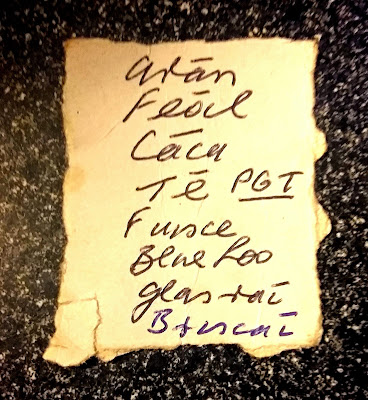 arán
Feóil
Cáca
Té PGT
Fuisce
Blue Loo
glasraí
Briscaí